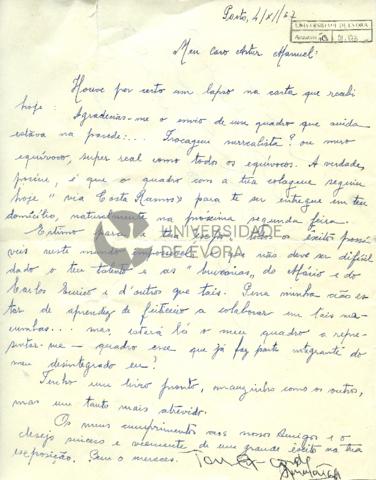 Porto, 4/XI/67
UNIVERSIDADE DE ÉVORA
Meu caro Artur Manuel:
Houve por certo um lapso na carta que recebi
hoje: Agradeces-me o envio de um quadro que ainda
estava na parede:... Trocagem surrealista? ou mero
equívoco, super real como todos os equívocos. A verdade,
porém, é que o quadro com a tua colagem seguiu
hoje "via Costa Ramos" para te ser entregue em teu
domicílio, naturalmente na próxima segunda feira.
Estimo para a todos os êxitos possí-
veis neste mundo o que não deve ser difícil
dado o teu talento e as do Mário e do
Carlos Eurico e d'outros que tais. Pena minha não es-
tar de aprendiz de feiticeiro a colaborar em tais ma-
cumbas... mas, estará lá o meu quadro a repre-
sentar-me — quadro esse que já faz parte integrante do
meu desintegrado eu!
Tenho um livro pronto, mauzinho como os outros,
mas um tanto mais atrevido.
Os meus cumprimentos aos nossos Amigos e o
desejo sincero e veemente de um grande êxito na tua
exposição. Bem o mereces.
UNIVERSIDADE
DE ÉVORA